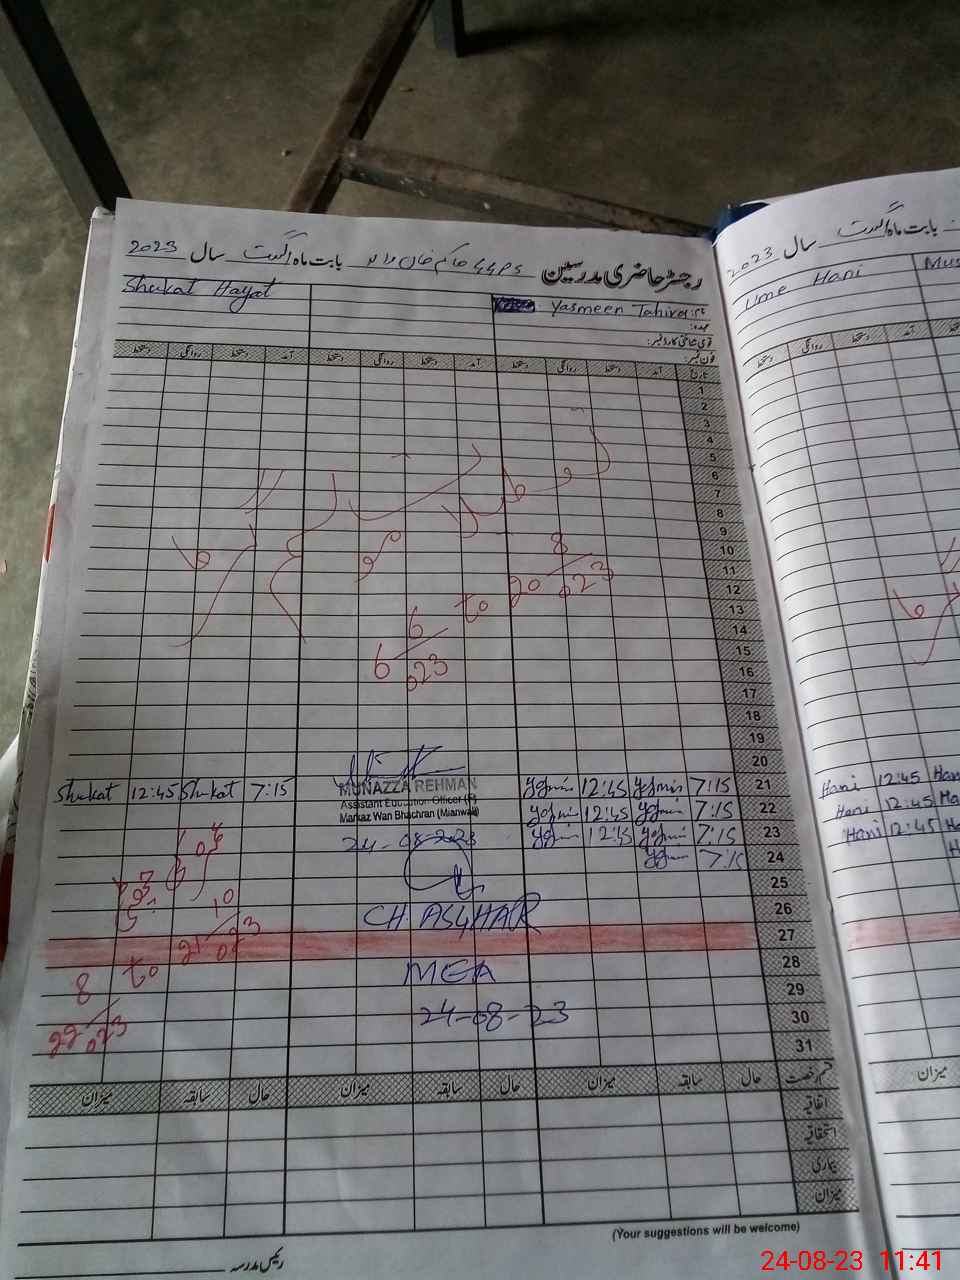 رجسٹر حاضری مدرسین GGPS حاکم خان والہ بابت ماہ اگست سال 2023
نام: Yasmeen Tahira
Shukat Hayat
عہدہ:
قومی شناختی کارڈ نمبر:
فون نمبر:
تاریخ آمد دستخط روانگی دستخط آمد دستخط روانگی دستخط آمد دستخط روانگی دستخط
1
2
3
4
5
6
7
8
9
10
11
12
13
14
15
16
17
18
19
20
موسم گرما
6/6/023 to 20/8/023
Shukat 12:45 Shukat 7:15 12:45 7:15 21
12:45 7:15 22
12:45 7:15 23
7:15 24
25
26
27
28
29
30
31
MUNAZZA REHMAN
Assistant Education Officer (F)
Markaz Wan Bhachran (Mianwali)
24-08-2023
CH ASGHAR
MEA
24-08-23
22/8/023 to 21/10/023
قسم رخصت حال سابقہ میزان حال سابقہ میزان حال سابقہ میزان
اتفاقیہ
استحقاقیہ
بیماری
میزان
(Your suggestions will be welcome)
رئیس مدرسہ
بابت ماہ اگست سال 2023
Ume Hani
Mus
آمد دستخط روانگی دستخط
Hani 12:45 Han
Hani 12:45 Ha
Hani 12:45 Ha
H
میزان
24-08-23 11:41